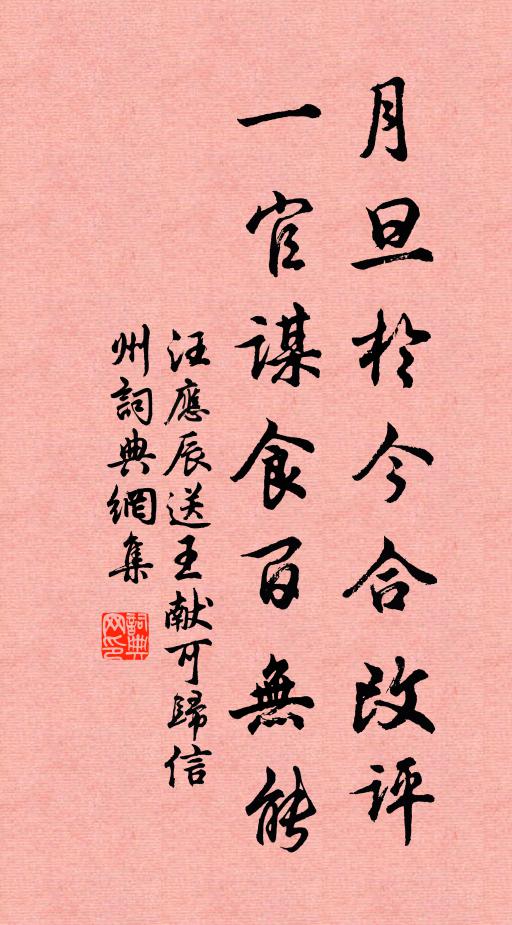 月旦於今合改評
一官謀食百無能
汪應辰送王献可歸信
州詞典網集
詞典网印